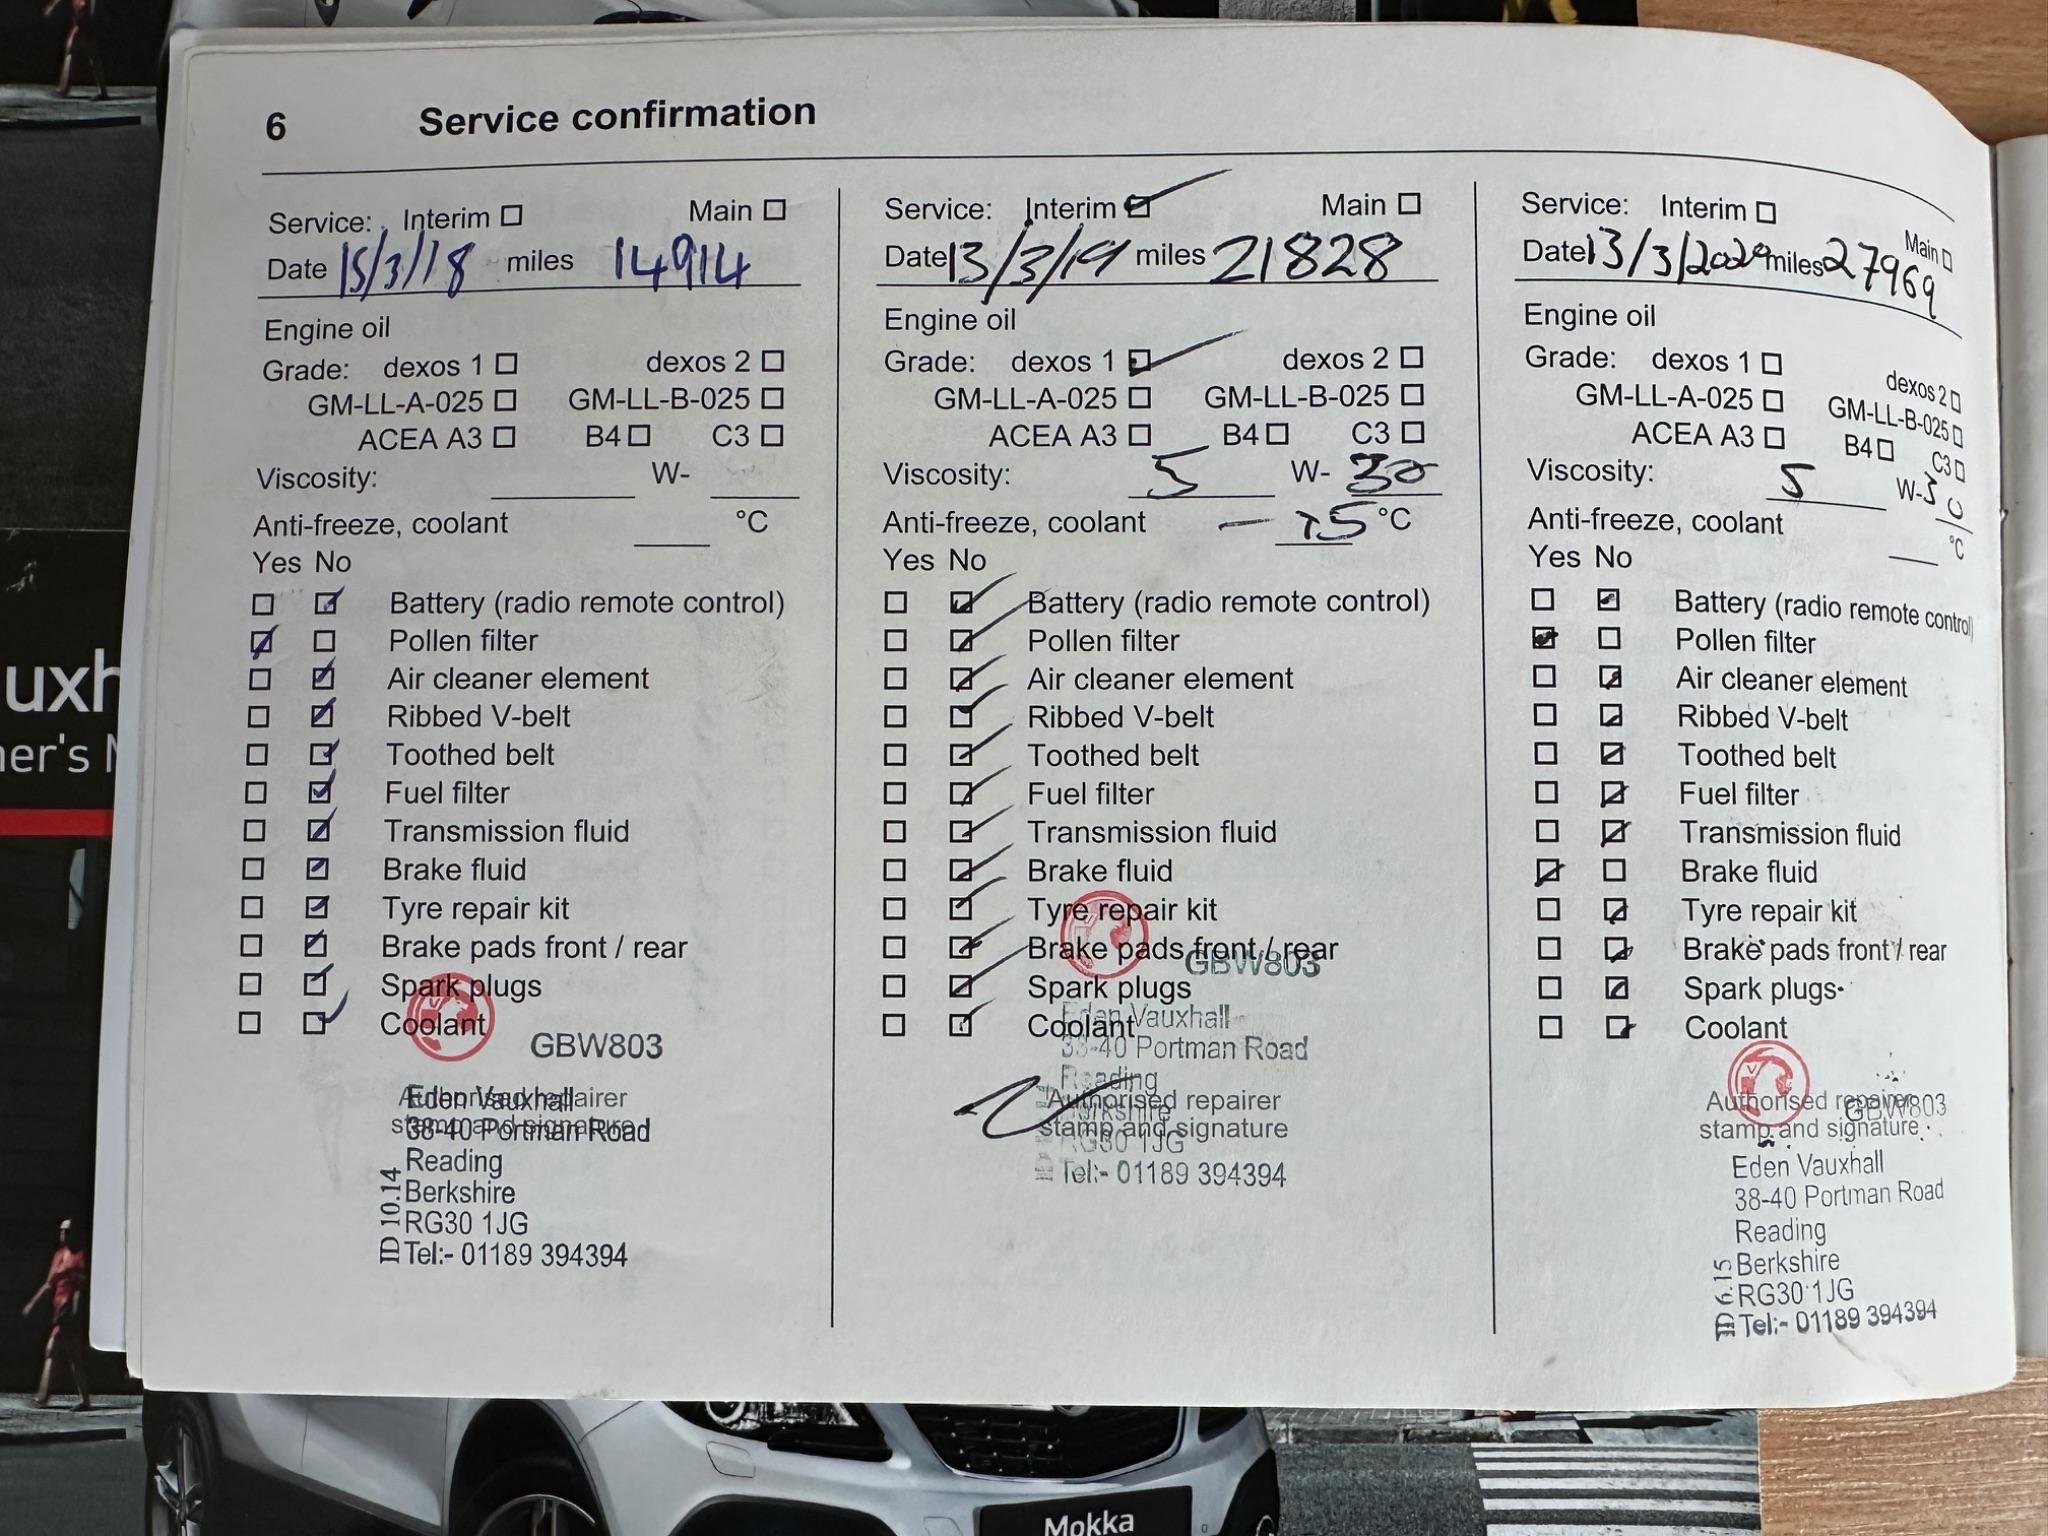 6 Service confirmation
Service: Interim Main
Date 15/3/18 miles 14914
Engine oil
Grade: dexos 1 dexos 2
GM-LL-A-025 GM-LL-B-025
ACEA A3 B4 C3
Viscosity: W-
Anti-freeze, coolant °C
Yes No
Battery (radio remote control)
Pollen filter
Air cleaner element
Ribbed V-belt
Toothed belt
Fuel filter
Transmission fluid
Brake fluid
Tyre repair kit
Brake pads front / rear
Spark plugs
Coolant
GBW803
Authorised repairer
stamp and signature
Eden Vauxhall
38-40 Portman Road
Reading
Berkshire
RG30 1JG
Tel:- 01189 394394
ID 10.14
Service: Interim Main
Date 13/3/19 miles 21828
Engine oil
Grade: dexos 1 dexos 2
GM-LL-A-025 GM-LL-B-025
ACEA A3 B4 C3
Viscosity: 5 W- 30
Anti-freeze, coolant °C
Yes No
Battery (radio remote control)
Pollen filter
Air cleaner element
Ribbed V-belt
Toothed belt
Fuel filter
Transmission fluid
Brake fluid
Tyre repair kit
Brake pads front / rear
GBW803
Spark plugs
Coolant
Eden Vauxhall
38-40 Portman Road
Reading
Berkshire
Authorised repairer
stamp and signature
RG30 1JG
Tel:- 01189 394394
Service: Interim Main
Date 13/3/2020 miles 27969
Engine oil
Grade: dexos 1 dexos 2
GM-LL-A-025 GM-LL-B-025
ACEA A3 B4 C3
Viscosity: 5 W-30
Anti-freeze, coolant °C
Yes No
Battery (radio remote control)
Pollen filter
Air cleaner element
Ribbed V-belt
Toothed belt
Fuel filter
Transmission fluid
Brake fluid
Tyre repair kit
Brake pads front / rear
Spark plugs
Coolant
Authorised repairer
GBW803
stamp and signature
Eden Vauxhall
38-40 Portman Road
Reading
Berkshire
RG30 1JG
Tel:- 01189 394394
ID 6.15
Mokka